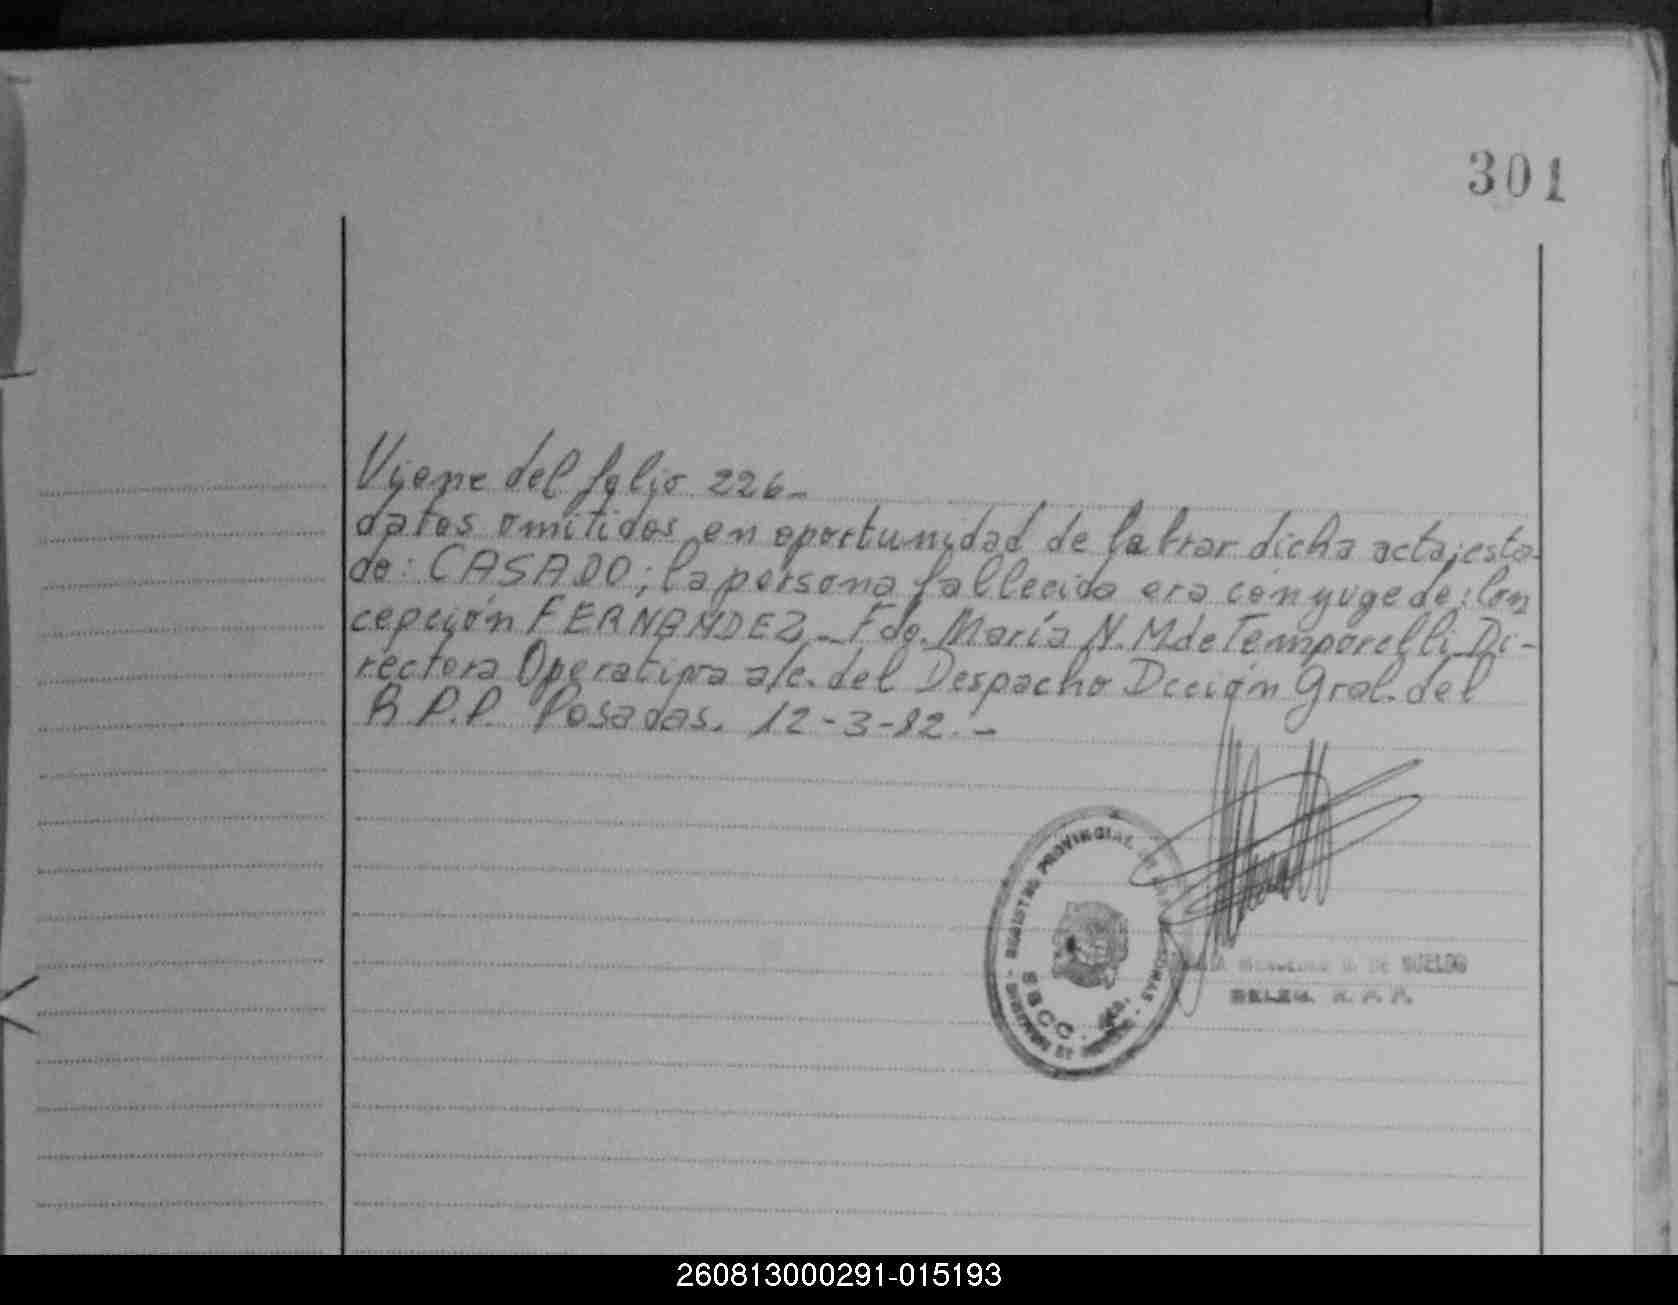 301
Viene del folio 226-
datos omitidos en oportunidad de labrar dicha acta; esta-
do: CASADO; la persona fallecida era cónyuge de: Con
cepción FERNANDEZ - Fdo. María N. M de Temporelli Di-
rectora Operativa a/c. del Despacho Dcción Gral. del
R P.P. Posadas. 12-3-82.-
REGISTRO PROVINCIAL DE LAS
SECC.
DE SUELDO
R. P. P.
260813000291-015193